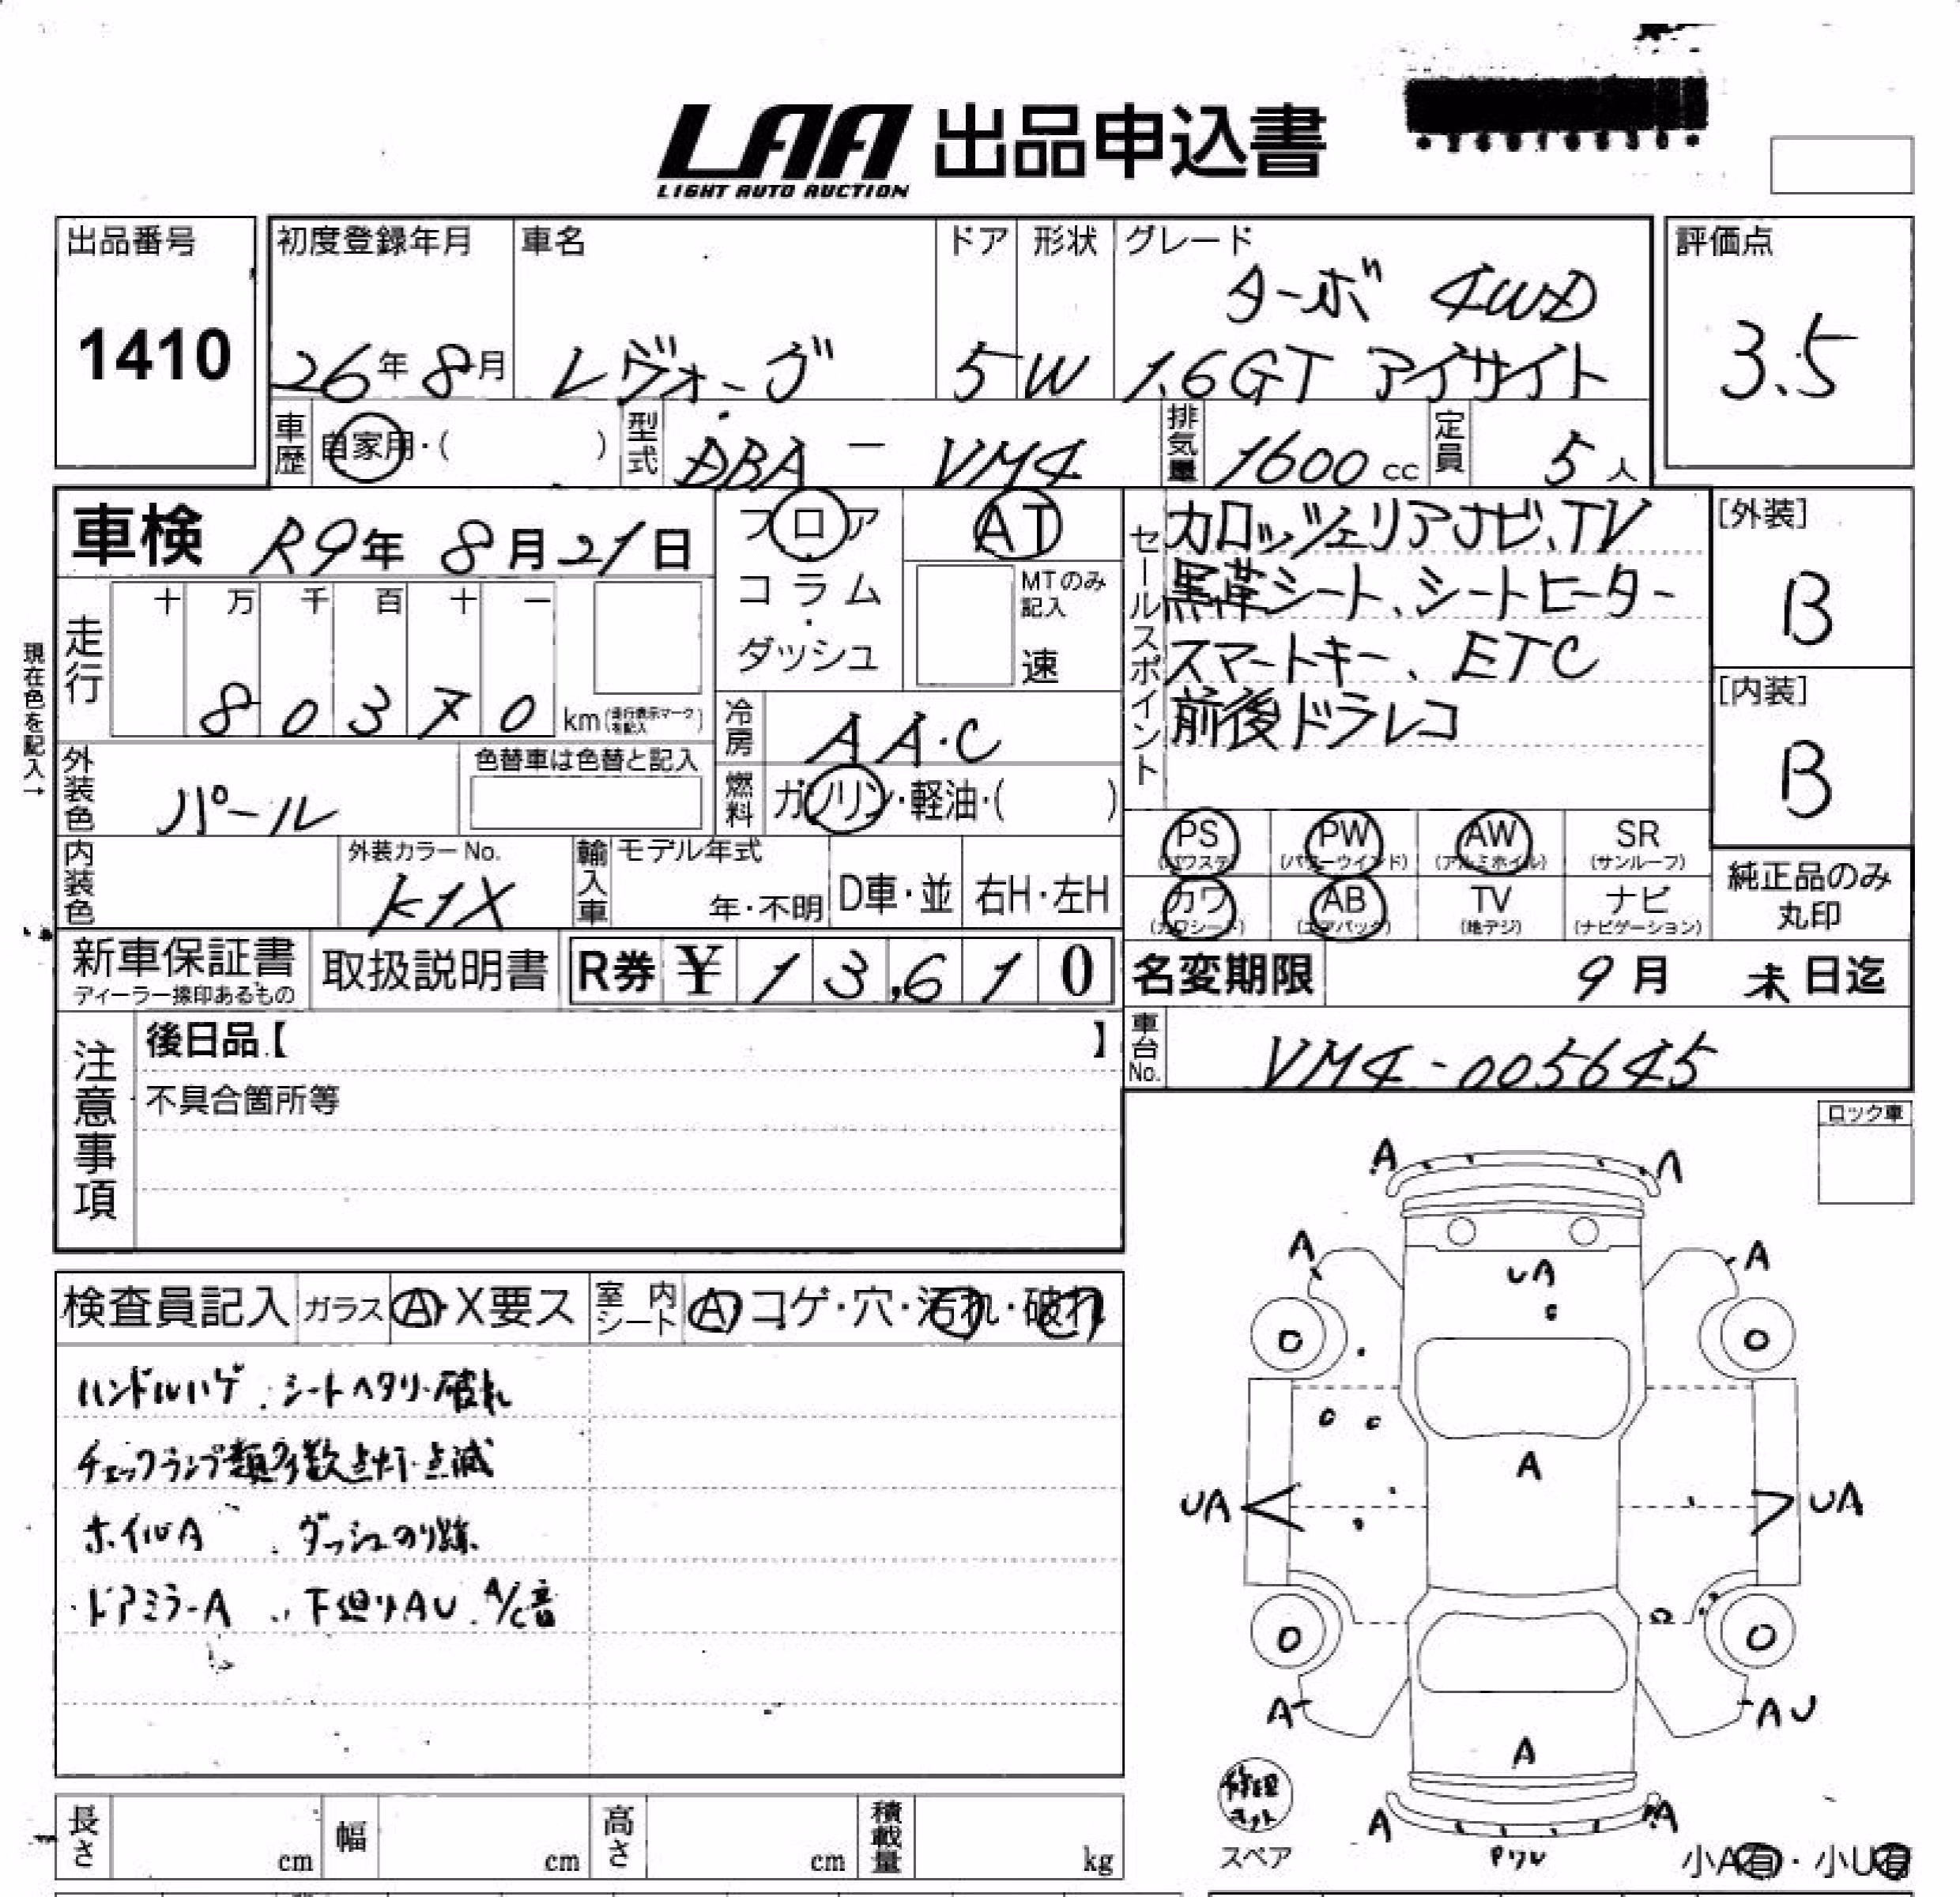 LAA 出品申込書
LIGHT AUTO AUCTION
出品番号
1410
初度登録年月
26年 8月
車名
レヴォーグ
ドア
5
形状
W
グレード
ターボ 4WD
1.6GT アイサイト
評価点
3.5
車歴
自家用・( )
型式
DBA - VM4
排気量
1600 cc
定員
5 人
車検 R9年 8月21日
現在色を記入→
走行
十 万 千 百 十 一
8 0 3 7 0 km(走行表示マークを記入)
フロア
コラム
・
ダッシュ
AT
MTのみ
記入
速
冷房
AA・C
燃料
ガソリン・軽油・( )
セールスポイント
カロッツェリアナビ、TV
黒革シート、シートヒーター
スマートキー、ETC
前後ドラレコ
[外装]
B
[内装]
B
外装色
パール
色替車は色替と記入
内装色
外装カラーNo.
K1X
輸入車
モデル年式
年・不明
D車・並
右H・左H
PS
(パワステ)
PW
(パワーウインド)
AW
(アルミホイル)
SR
(サンルーフ)
カワ
(カワシート)
AB
(エアバック)
TV
(地デジ)
ナビ
(ナビゲーション)
純正品のみ
丸印
新車保証書
ディーラー捺印あるもの
取扱説明書
R券 ¥ 1 3,6 1 0
名変期限 9月 末日迄
車台No.
VM4-005645
注意事項
後日品【 】
不具合箇所等
ロック車
検査員記入 ガラス A・X要ス 室内シート A コゲ・穴・汚れ・破れ
ハンドルハゲ . シートヘタリ・破れ
チェックランプ類多数点灯・点滅
ホイルA . ダッシュのり跡.
・ドアミラーA .. 下廻りAU . A/C音
A A
A A
UA
C
O O
C C
A
UA UA
O O
A AU
A
A A
修理キット
スペア
Pワレ
小A有・小U有
長さ cm
幅 cm
高さ cm
積載量 kg